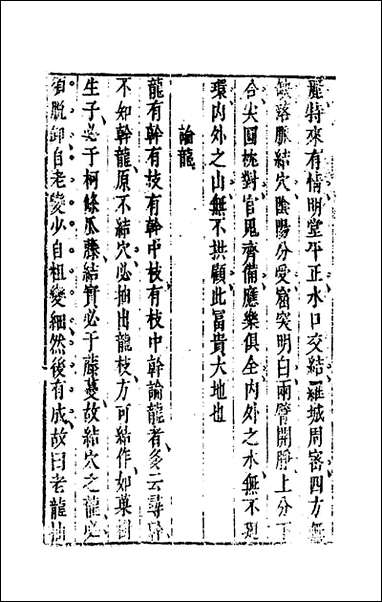 麗特來有情明堂平正水口交結羅城周密四方無
缺落脈結穴陰陽分受窟突明白兩臂開睜上分下
合尖圓枕對官鬼齊備應樂俱全內外之水無不
環內外之山無不拱顧此富貴大地也
論龍
龍有幹有枝有幹中枝有枝中幹論龍者多云尋幹
不知幹龍原不結穴必抽出龍枝方可結作如菓樹
生子必于柯條瓜藤結實必于藤蔓故結穴之龍必
須脫卸自老變少自粗變細然後有成故曰老龍抽